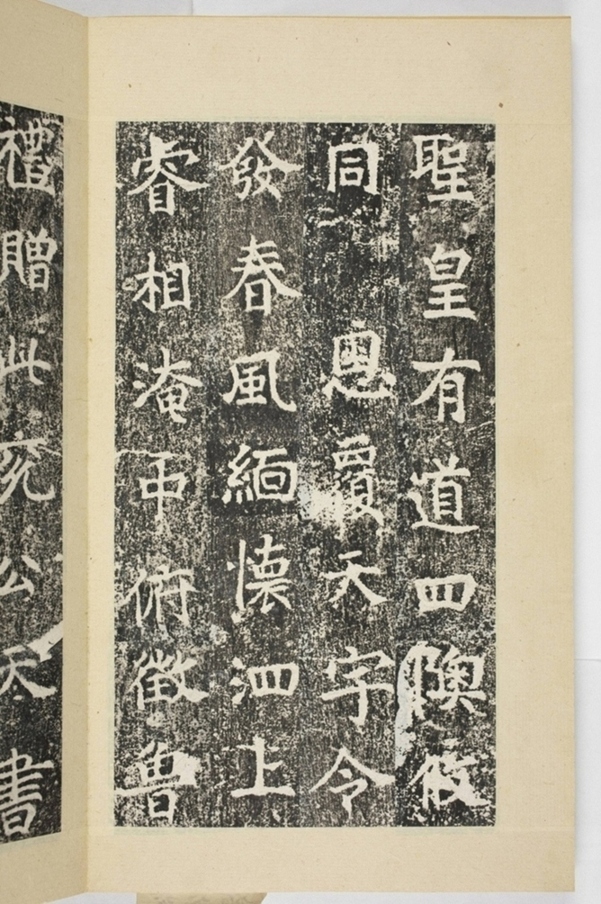 聖皇有道四隩攸
同恩覆天宇令
發春風緬懷泗上
睿相淹中俯徵魯
禮贈此兖公天書